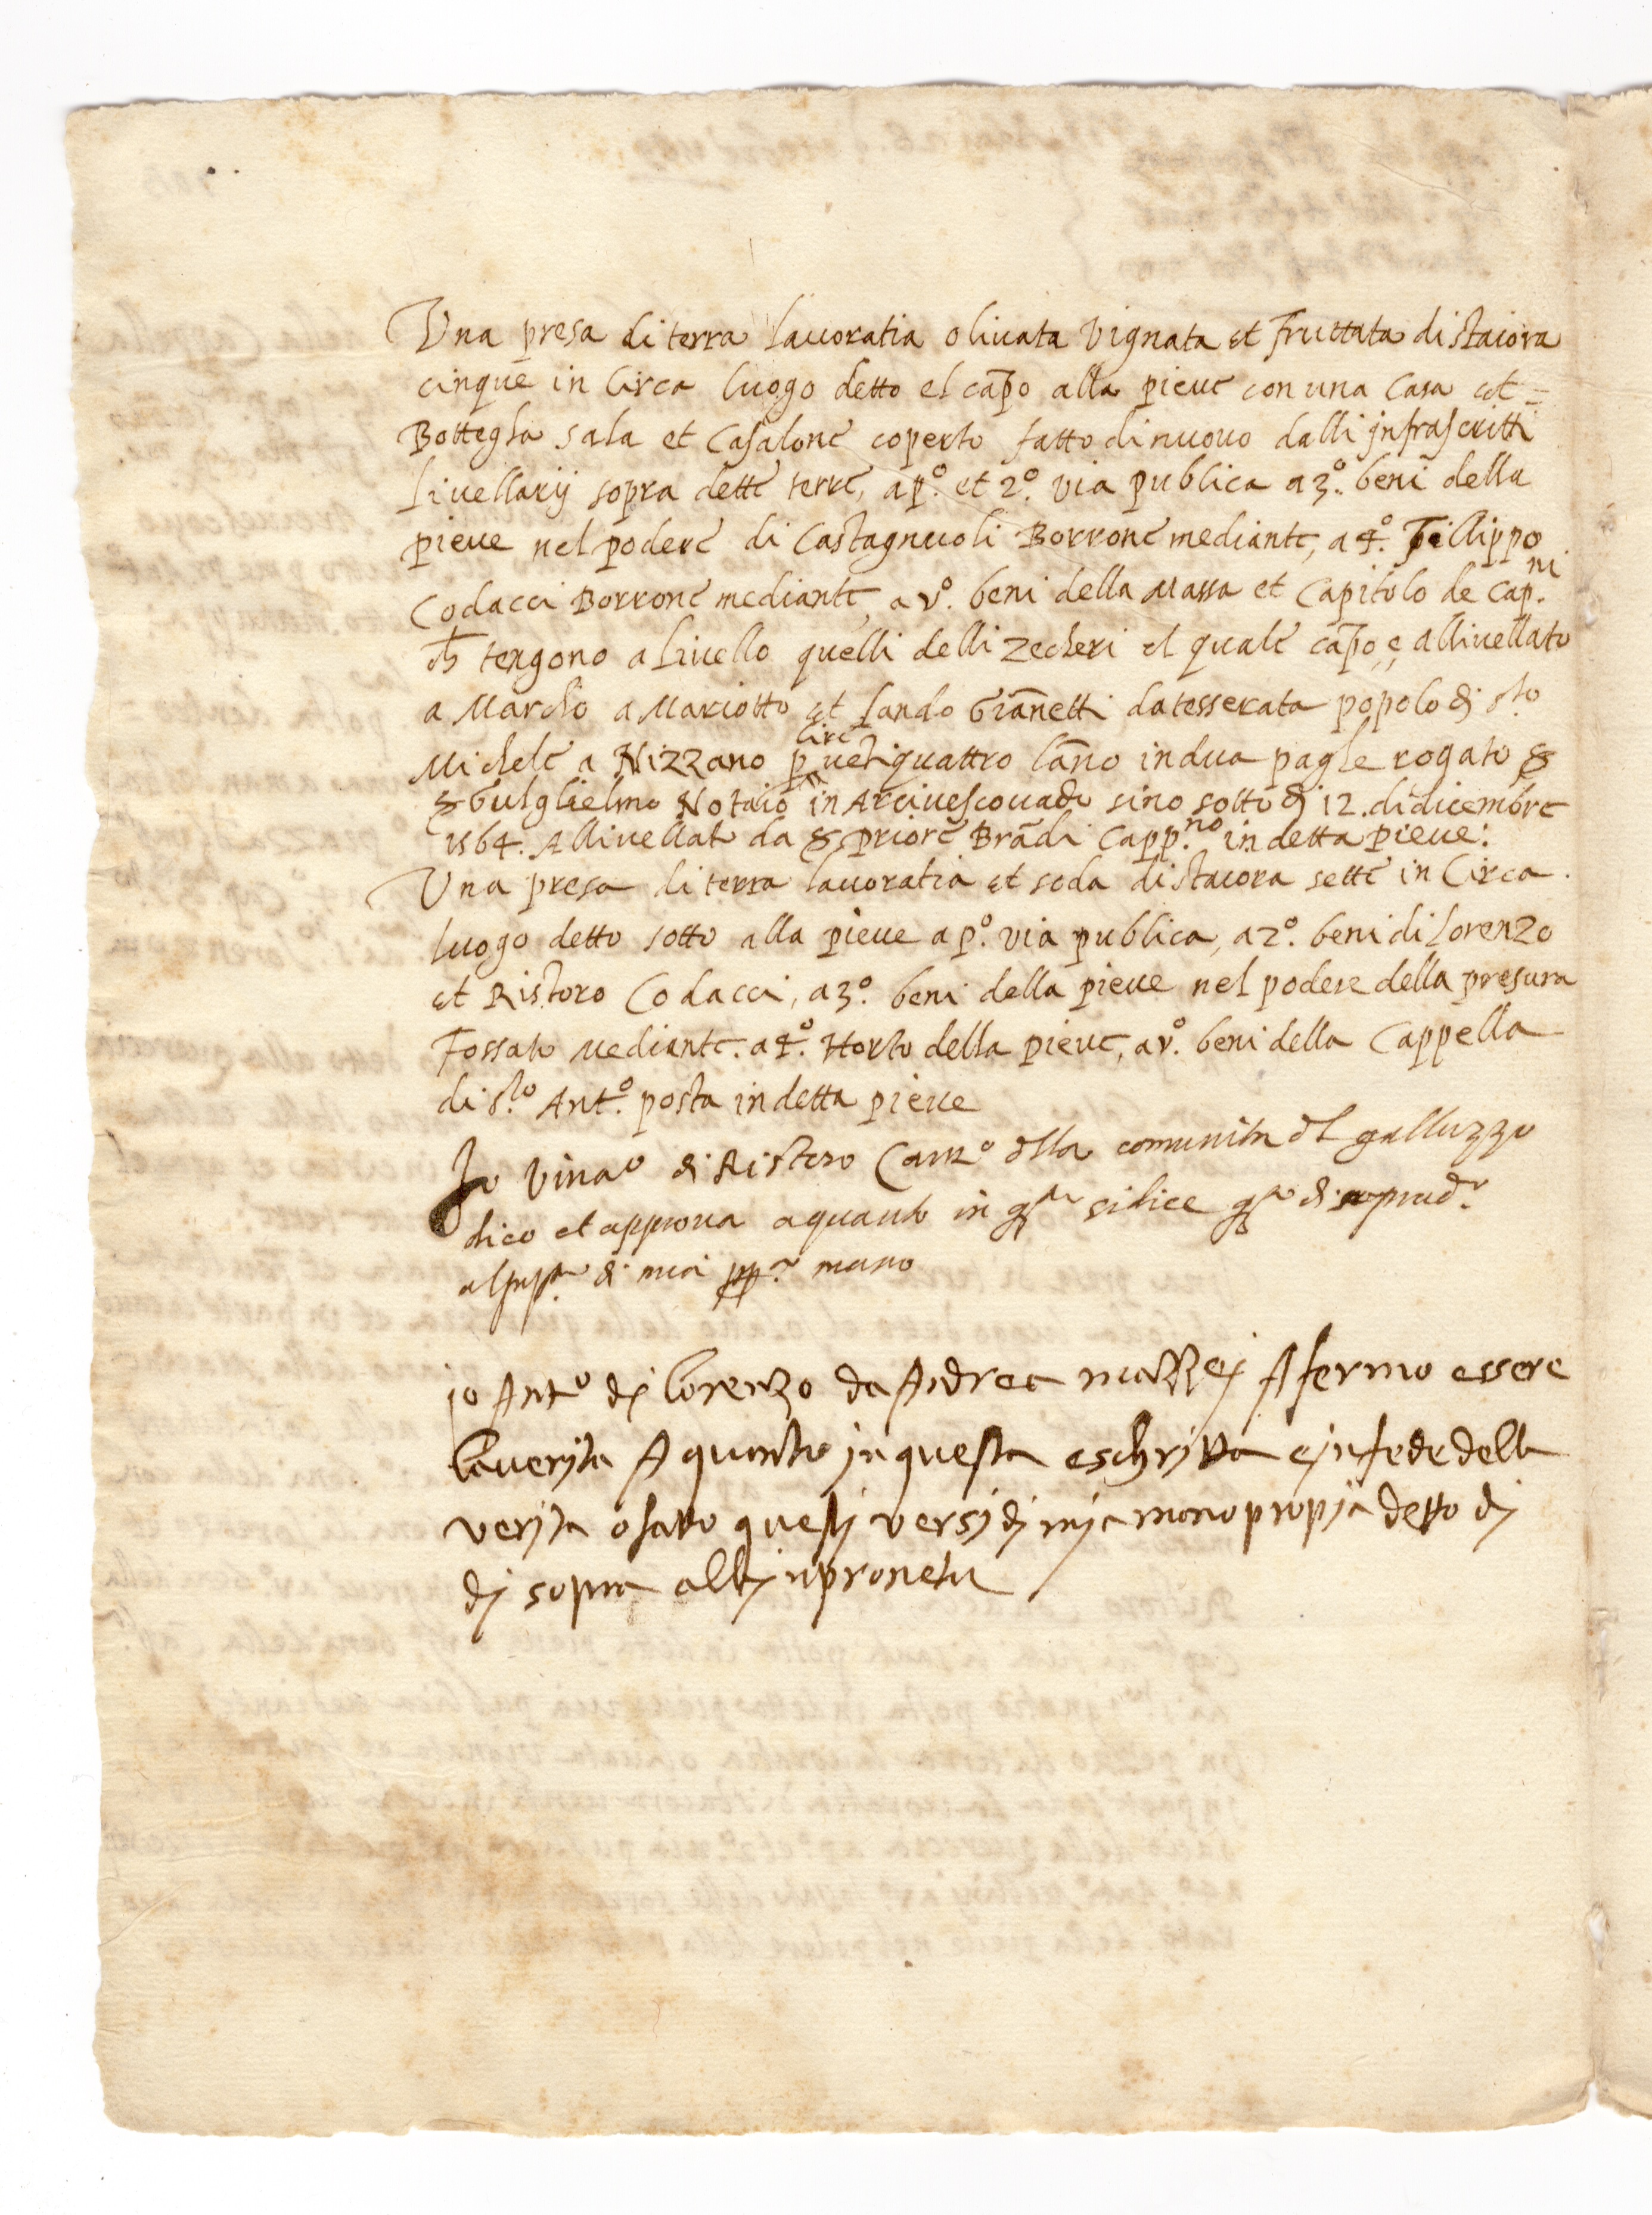 Una presa di terra lauoratia oliuata Vignata et fruttata di staiora
cinque in Circa luogo detto el cāpo alla pieue con una Casa et =
Bottegha sala et Casalone coperto fatto di nuouo dalli jnfrascritti
liuellarij sopra dette terre, a p.º et 2.º via publica a 3.º beni della
pieue nel podere di Castagnuoli Borrone mediante, a 4.º Fillippo
Codacci Borrone mediante, a v.º beni della Massa et Capitolo de Cap.ni
ch tengono a liuello quelli delli Zecheri el quale cāpo, e, alliuellato
a Marcho a Mariotto et Sando Giānetti da tesserata popolo di s.to
Michele a Nizzano p lire uētiquattro lāno in dua paghe rogato
Gulglielmo Notaio in Arciuescouado sino sotto di 12. di dicembre
1564. Alliuellato da priore Brādi Capp.no in detta pieue:
Una presa di terra lauoratia et soda di staiora sette in Circa.
luogo detto sotto alla pieue a p.º via publica, a 2.º beni di lorenzo
et Ristoro Codacci, a 3.º beni della pieue nel podere della presura
Fossato mediante. a 4.º Horto della pieue, a v.º beni della Cappella
di s.to Ant.º posta in detta pieue
Io di Ristoro comunita galluzzo
dico et approua a quanto in si dice di
di mia mano
io Ant.º dj lorenzo da Andrea mazzej Afermo essere
la uerjta A quanto jn questa e schrjtta e jn fede della
verjta o fatto questj versj dj mja mono propja detto dj
dj sopra